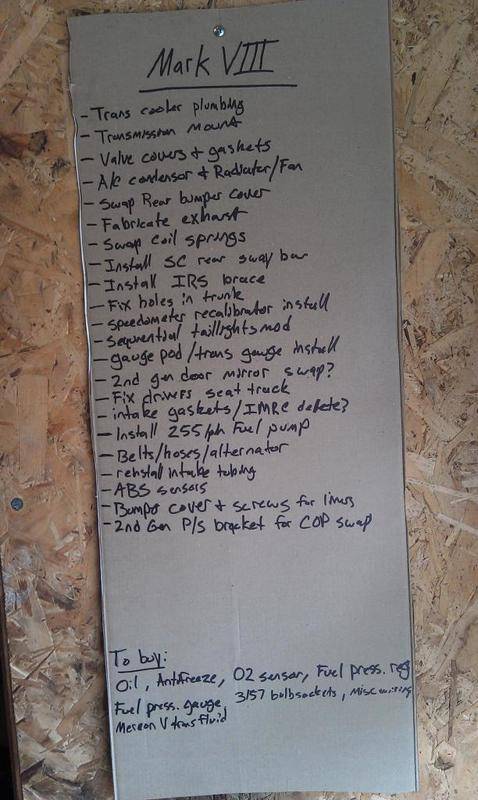 Mark VIII
- Trans cooler plumbing
- Transmission mount
- Valve covers & gaskets
- A/C condensor & Radiator/Fan
- Swap Rear bumper cover
- Fabricate exhaust
- Swap coil springs
- Install SC rear sway bar
- Install IRS brace
- Fix holes in trunk
- Speedometer recalibrator install
- Sequential taillights mod
- gauge pod/trans gauge install
- 2nd gen door mirror swap?
- Fix drivers seat track
- intake gaskets/IMRC delete?
- Install 255lph Fuel pump
- Belts/hoses/alternator
- reinstall intake tubing
- ABS sensors
- Bumper cover & screws for liners
- 2nd Gen P/S bracket for COP swap
To buy:
Oil, Antifreeze, O2 sensor, Fuel press. reg
Fuel press. gauge, 3157 bulb sockets, misc wiring
Mercon V trans fluid